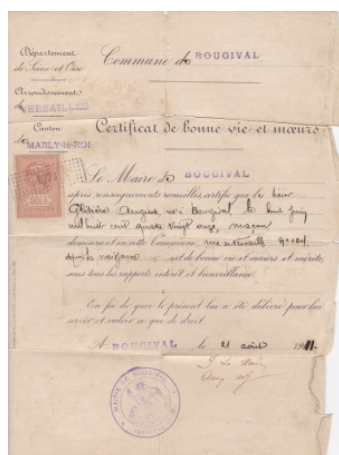 Département
de Seine-et-Oise
Commune de BOUGIVAL
Arrondissement
de VERSAILLES
Canton
de MARLY-le-ROI
Certificat de bonne vie et mœurs.
Le Maire de BOUGIVAL
après renseignements recueillis, certifie que le Sieur
Auguste né à Bougival le huit juin
mil huit cent quatre vingt onze, maçon
demeurant en cette Commune, rue de Versailles
depuis sa naissance est de bonne vie et mœurs et mérite,
sous tous les rapports, intérêt et bienveillance.
En foi de quoi le présent lui a été délivré pour lui
servir et valoir ce que de droit.
A BOUGIVAL, le 21 août 1911.
Le Maire
MAIRIE DE BOUGIVAL